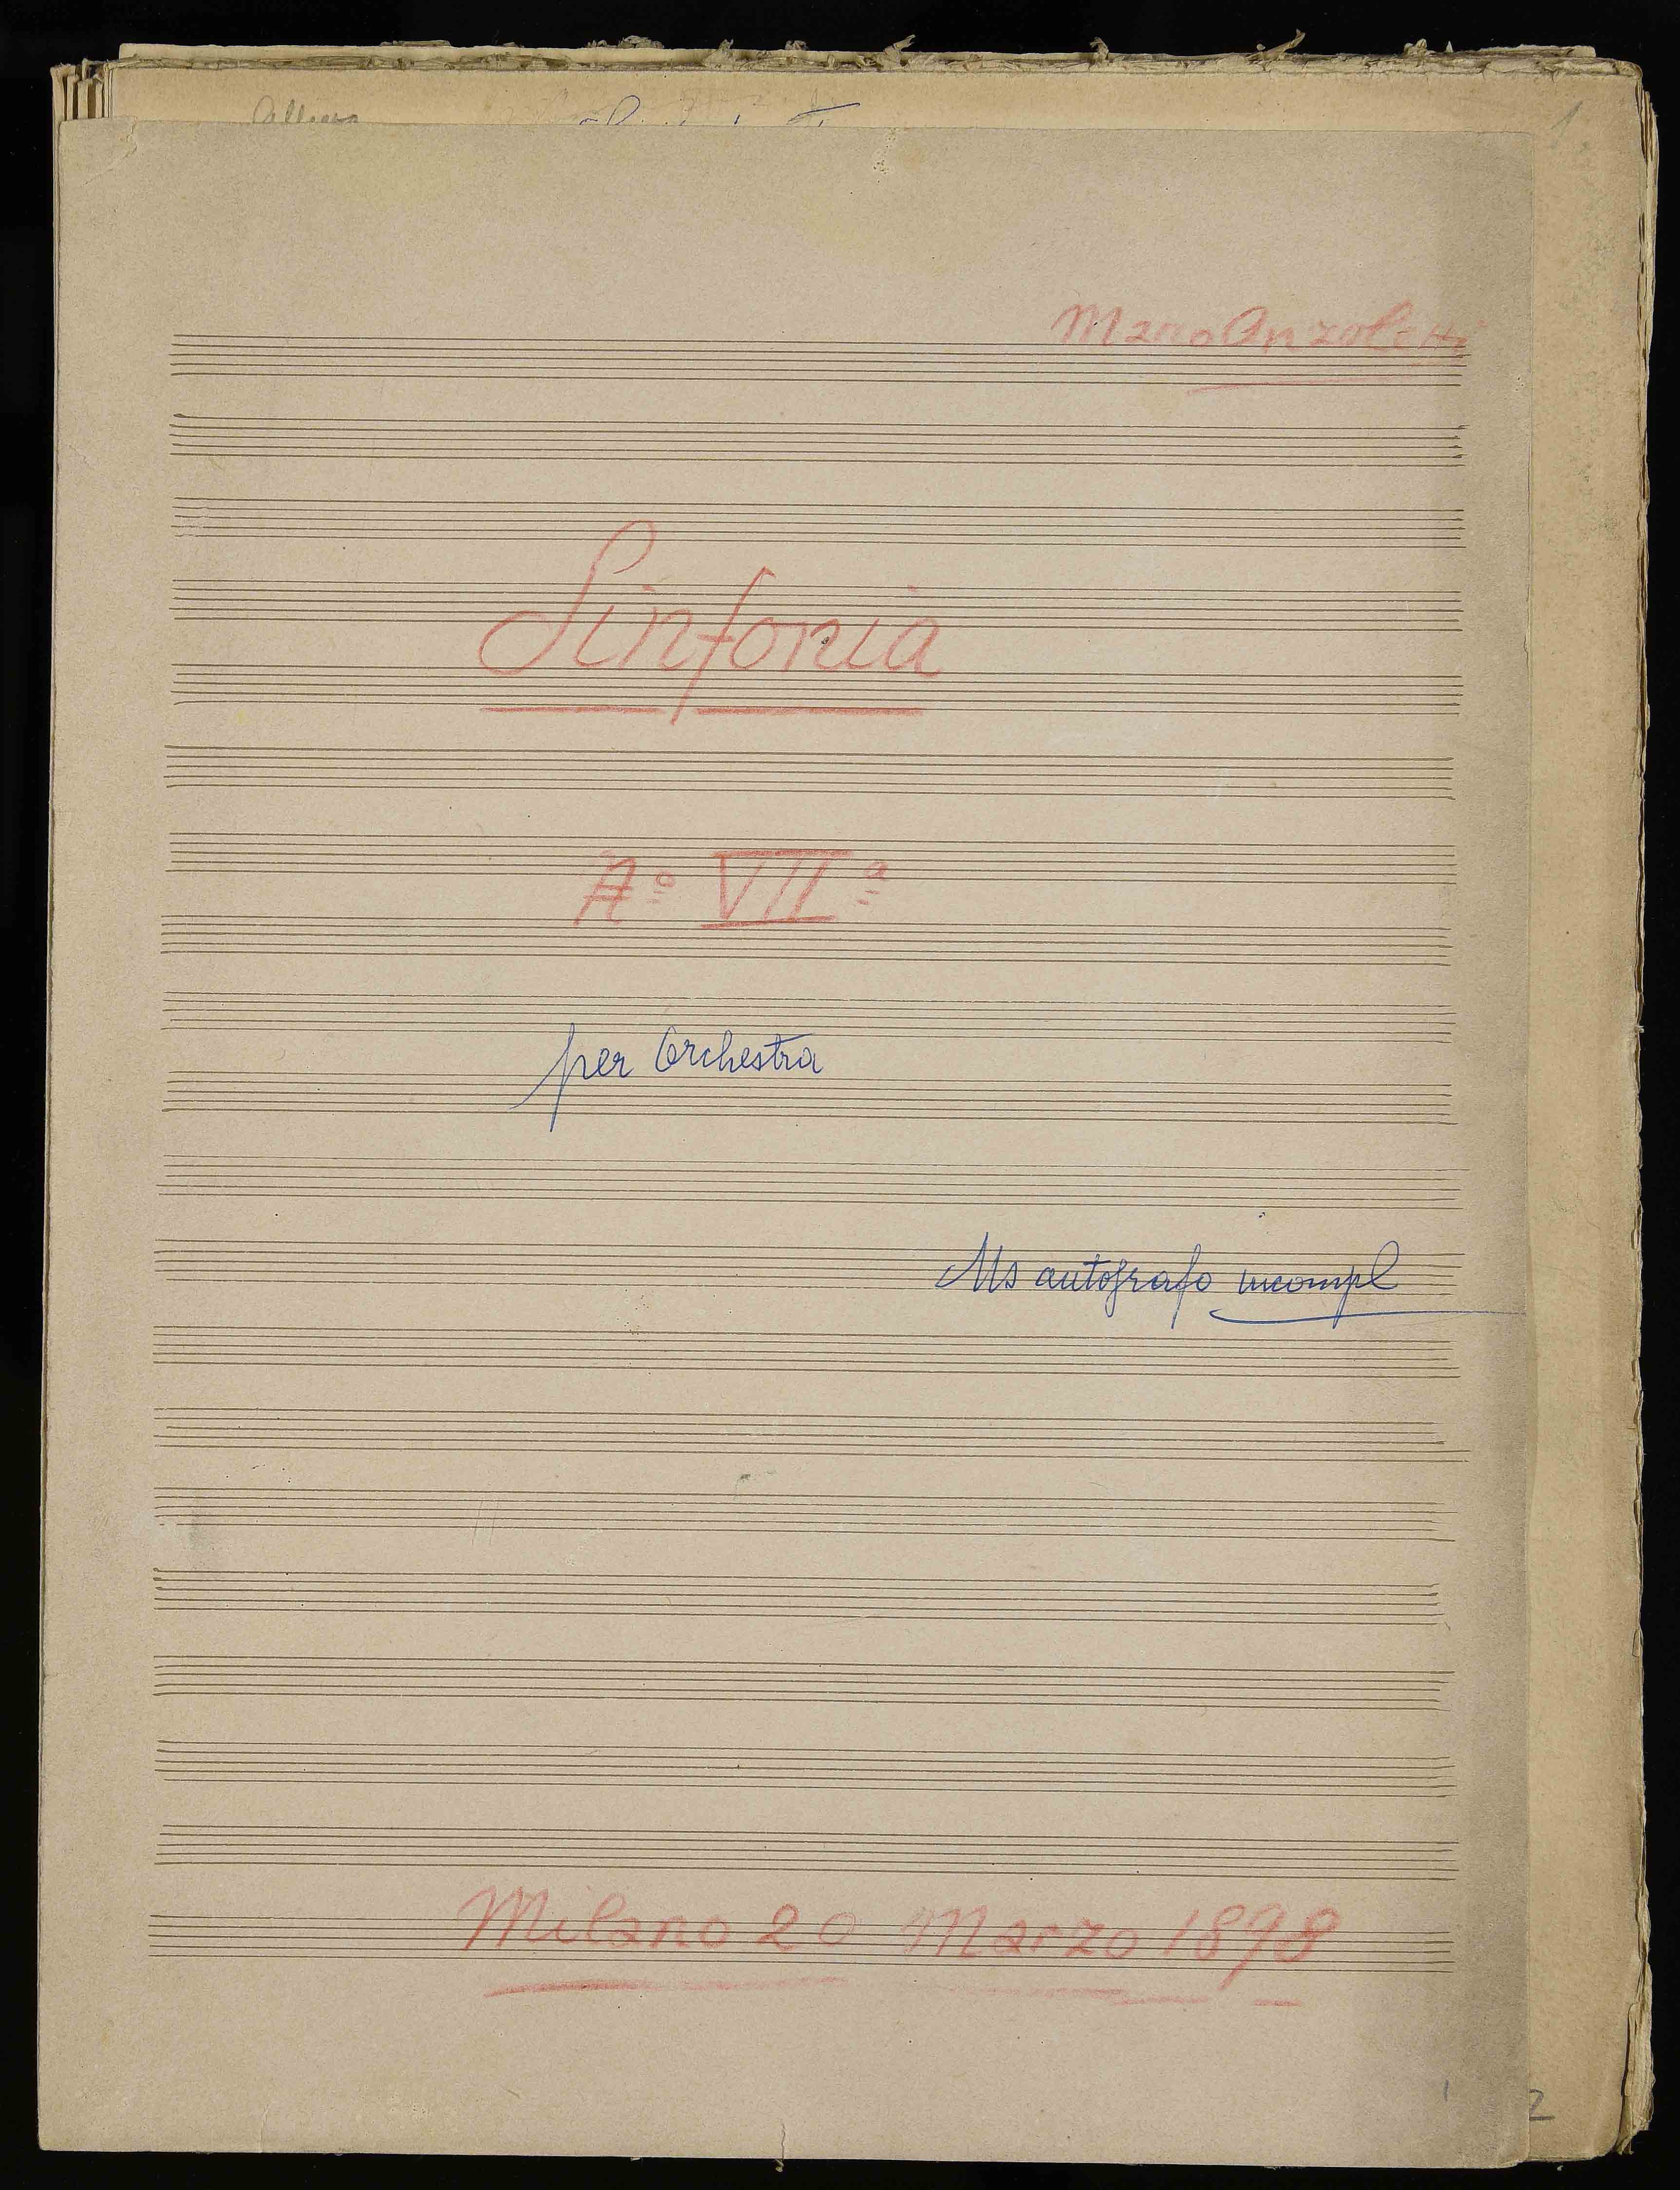 1
Marco Anzoletti
Sinfonia
Nº VIIª
per Orchestra
Ms autografo incompl
Milano 20 Marzo 1898
1
2